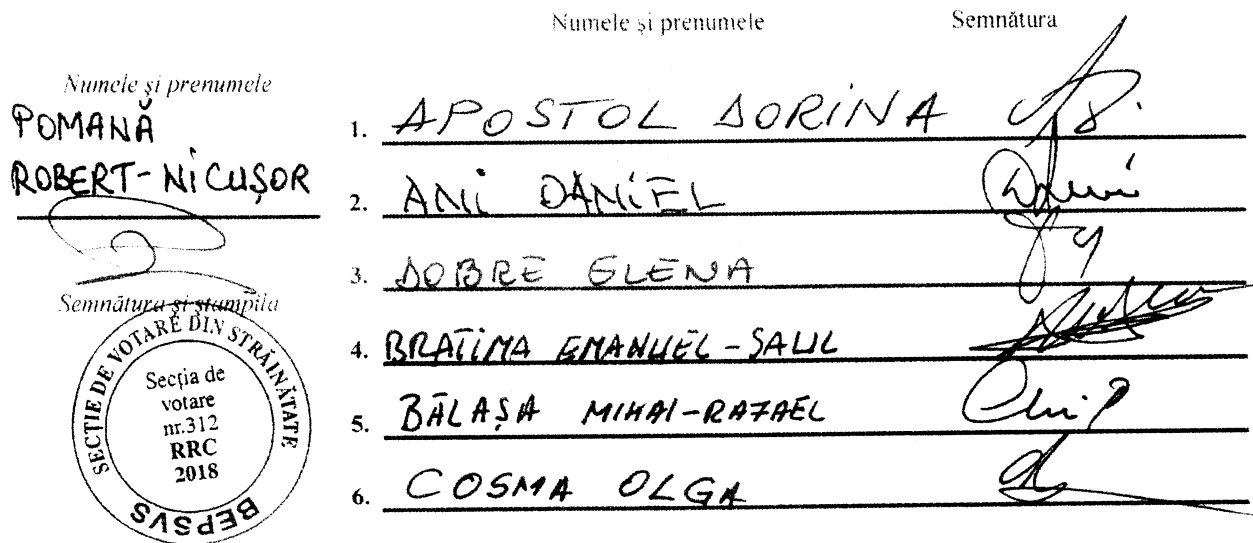 Numele și prenumele Semnătura
Numele și prenumele
POMANĂ
ROBERT-NICUȘOR
Semnătura și ștampila
SECȚIE DE VOTARE DIN STRĂINĂTATE
Secția de
votare
nr.312
RRC
2018
BEPSVS
1. APOSTOL DORINA
2. ANI DANIEL
3. DOBRE ELENA
4. BRATIMA EMANUEL-SAUL
5. BĂLAȘA MIHAI-RAFAEL
6. COSMA OLGA